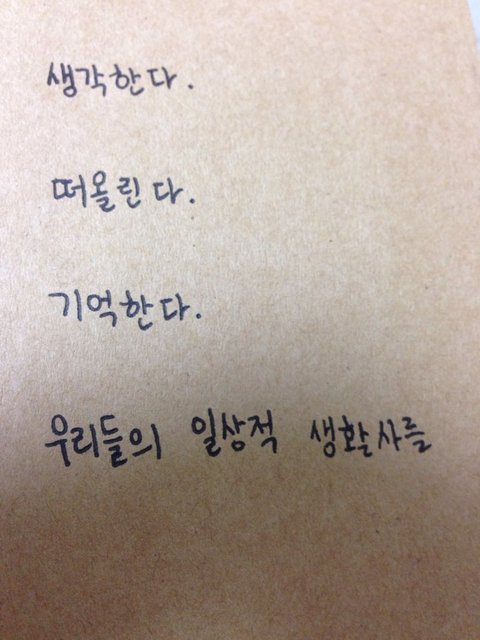 생각한다.
떠올린다.
기억한다.
우리들의 일상적 생활사를